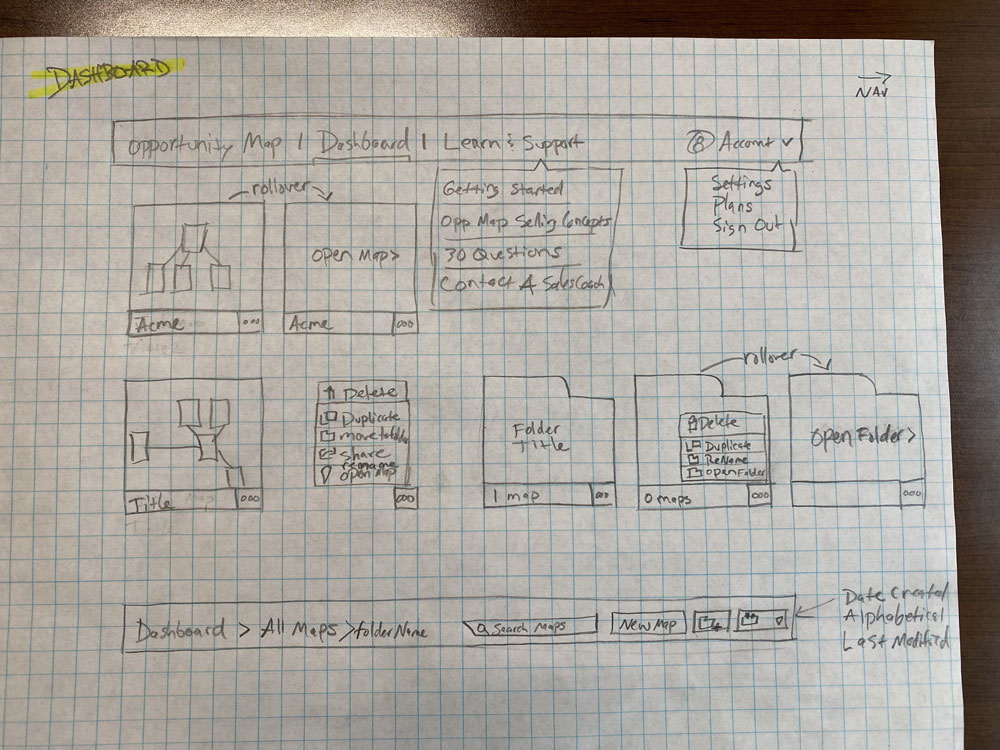 DASHBOARD
NAV
Opportunity Map | Dashboard | Learn & Support
Account
rollover
Getting Started
Opp Map Selling Concepts
30 Questions
Contact A Sales Coach
Settings
Plans
Sign Out
Open Map>
Acme
ooo
Acme
ooo
rollover
Title
ooo
Delete
Duplicate
move to folder
Share
rename
open map
ooo
Folder
Title
1 map
ooo
Delete
Duplicate
ReName
open Folder
0 maps
ooo
Open Folder>
ooo
Dashboard > All Maps > folderName
Search Maps
New Map
Date Created
Alphabetical
Last Modified